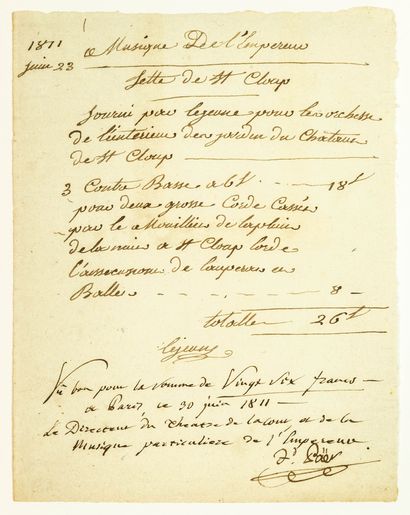 1811
Juin 23
a Musique De l'Empereur
fette de St Cloup
fourni par lejeune pour les orchesse
de linterieur des jardin du Chateau
de St Cloup
3 Contre Basse a 6f 18f
pour deux grosse Corde Cassés
par le Mouilliée de la pluis
de la nuis a St Cloup lorde
l'assecunsion de
Balle 8
totalle 26f
lejeune
Vû bon pour la somme de Vingt Six francs
a Paris, ce 30 juin 1811
Le Directeur du théatre de la Cour, et de la
Musique particuliere de l'Empereur
fd. Paër